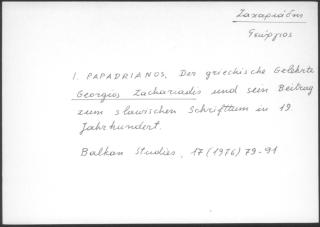 Ζαχαριάδη
Γεώργιος
I. PAPADRIANOS, Der griechische Gelehrte
Georgios Zachariadis und sein Beitrag
zum slawischen Schrifttum im 19.
Jahrhundert.
Balkan Studies, 17 (1976) 79-91